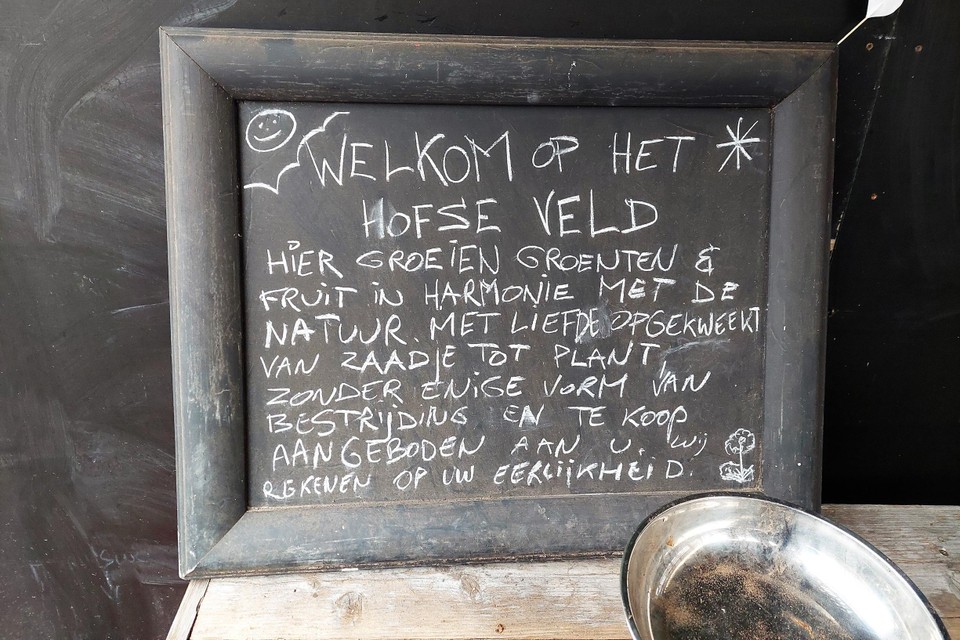 WELKOM OP HET
HOFSE VELD
HIER GROEIEN GROENTEN &
FRUIT IN HARMONIE MET DE
NATUUR. MET LIEFDE OPGEKWEEKT
VAN ZAADJE TOT PLANT,
ZONDER ENIGE VORM VAN
BESTRIJDING EN TE KOOP
AANGEBODEN AAN U. WIJ
REKENEN OP UW EERLIJKHEID.